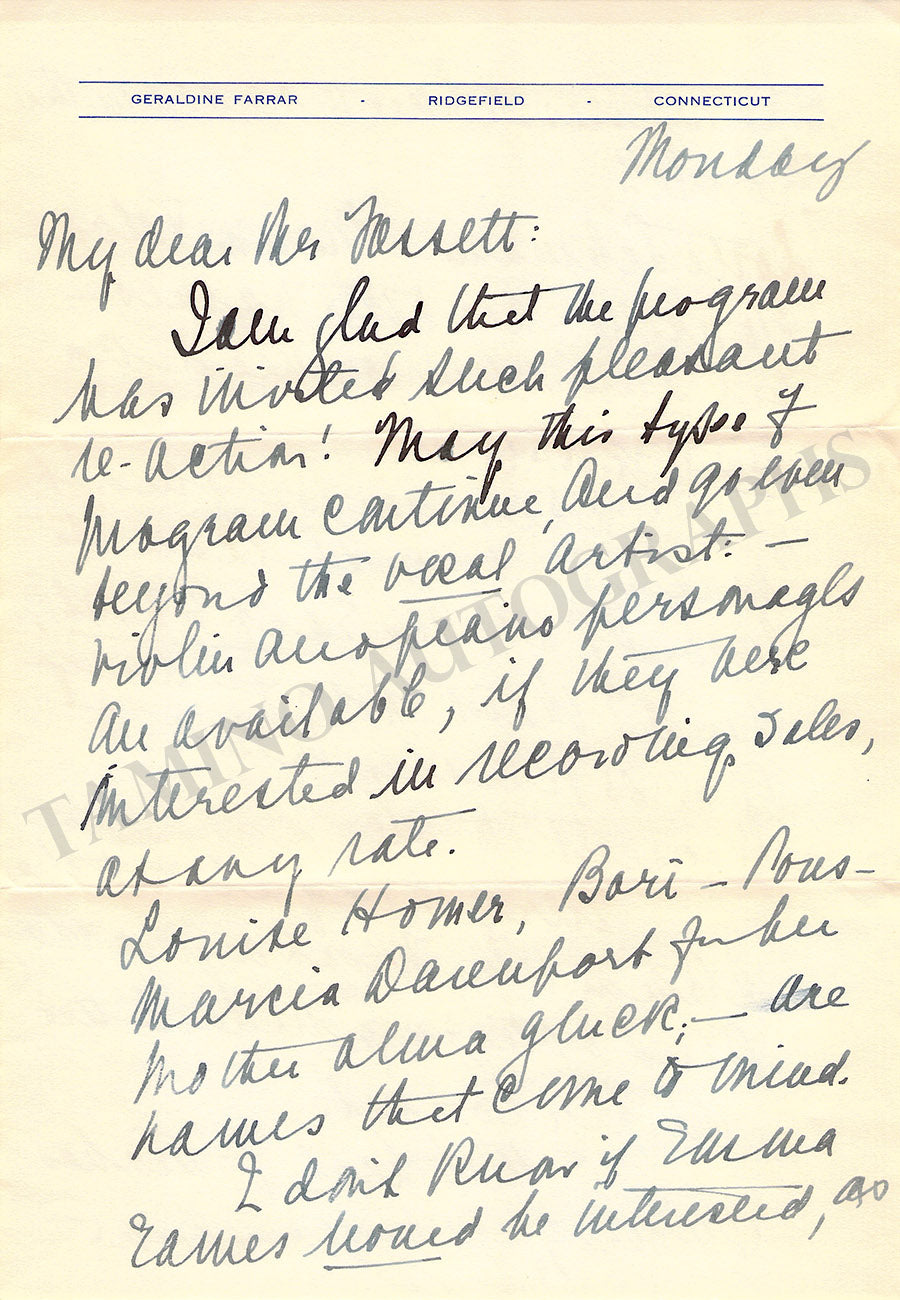 GERALDINE FARRAR - RIDGEFIELD - CONNECTICUT
Monday
My dear Mr Fassett:
I am glad that the program
has invited such pleasant
re-action! May this type of
program continue, and go even
beyond the vocal artist: —
violin and piano personages
are available, if they were
interested in recording sales,
at any rate.
Louise Homer, Bori - Pons -
Marcia Davenport for her
mother Alma Gluck; — are
names that come to mind.
I don't know if Emma
Eames would be interested, as
TAMINO AUTOGRAPHS